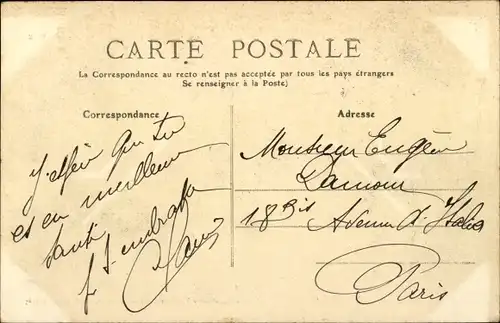 CARTE POSTALE
La Correspondance au recto n'est pas acceptée par tous les pays étrangers
Se renseigner à la Poste)
Correspondance
J'espère que tu
es en meilleure
santé
je t'embrasse
Adresse
Monsieur Eugène
Lamour
18 Bis Avenue d'Italie
Paris